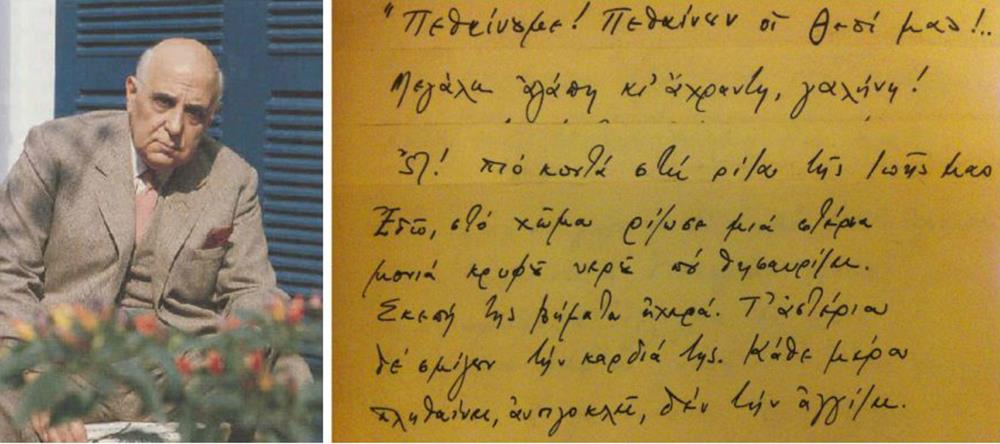 "Πεθαίνουμε! Πεθαίνουν οἱ θεοί μας!..
Μεγάλη ἀγάπη κι' ἄχραντη, γαλήνη!
Ὤ! πιό κοντά στή ρίζα τῆς ζωῆς μας
Ἐδῶ, στό χῶμα ρίζωσε μιά στέρνα
μονιά κρυφοῦ νεροῦ πού θησαυρίζει.
Σκεπή της βήματα ἠχερά. Τ' ἀστέρια
δέ σμίγουν τήν καρδιά της. Κάθε μέρα
πληθαίνει, ἀνοιγοκλεῖ, δέν τήν ἀγγίζει.